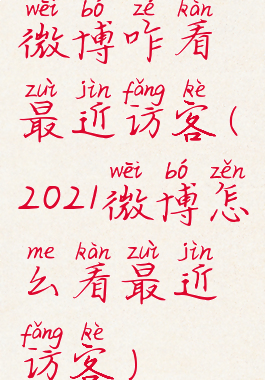 wēi bó zé kàn
微博咋看
zuì jìn fǎng kè
最近访客(
wēi bó zěn
2021微博怎
me kàn zuì jìn
么看最近
fǎng kè
访客)